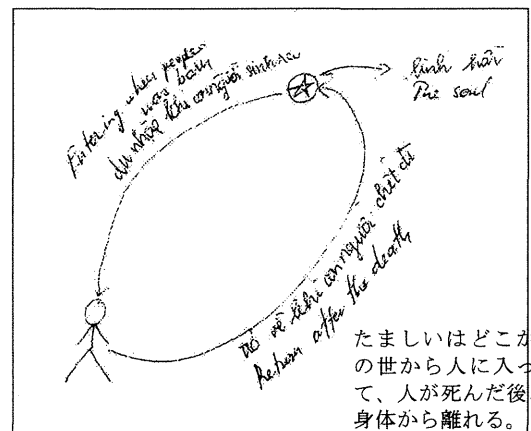 Entering when people
was born
du nhập khi con người sinh ra
linh hồn
The soul
trở về khi con người chết đi
Return after the death
たましいはどこか
の世から人に入っ
て、人が死んだ後
身体から離れる。